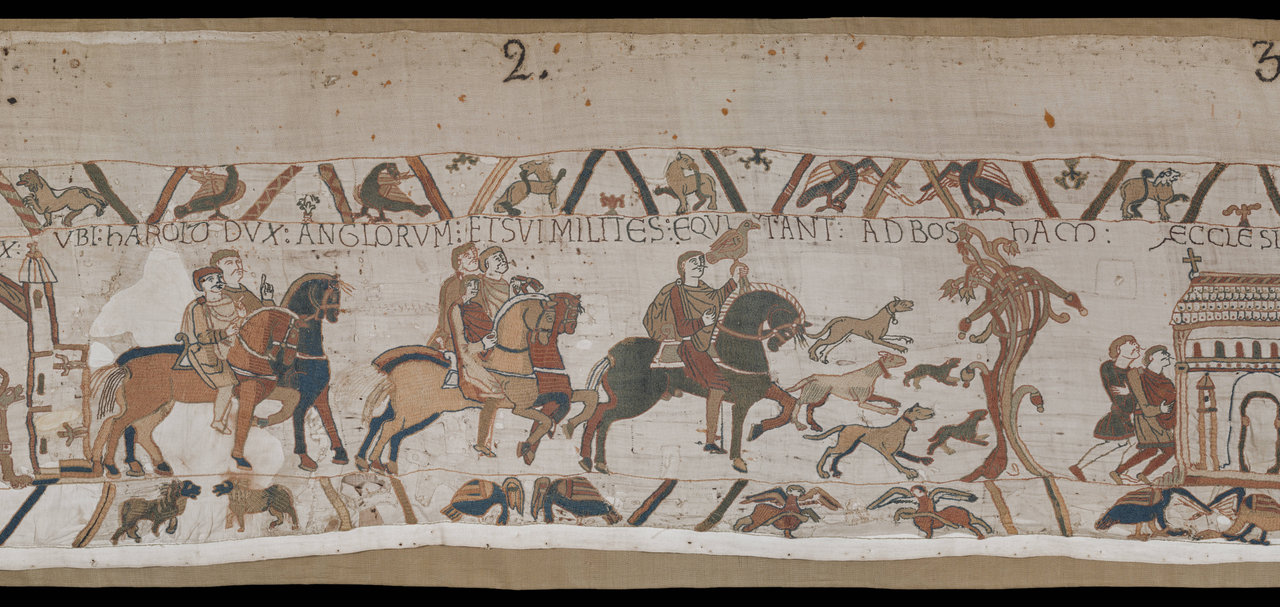 2. 3
X: VBI: hAROLD DVX: ANGLORVM: ET SVI MILITES: EQVI TANT: AD BOS hAM: ECCLESI